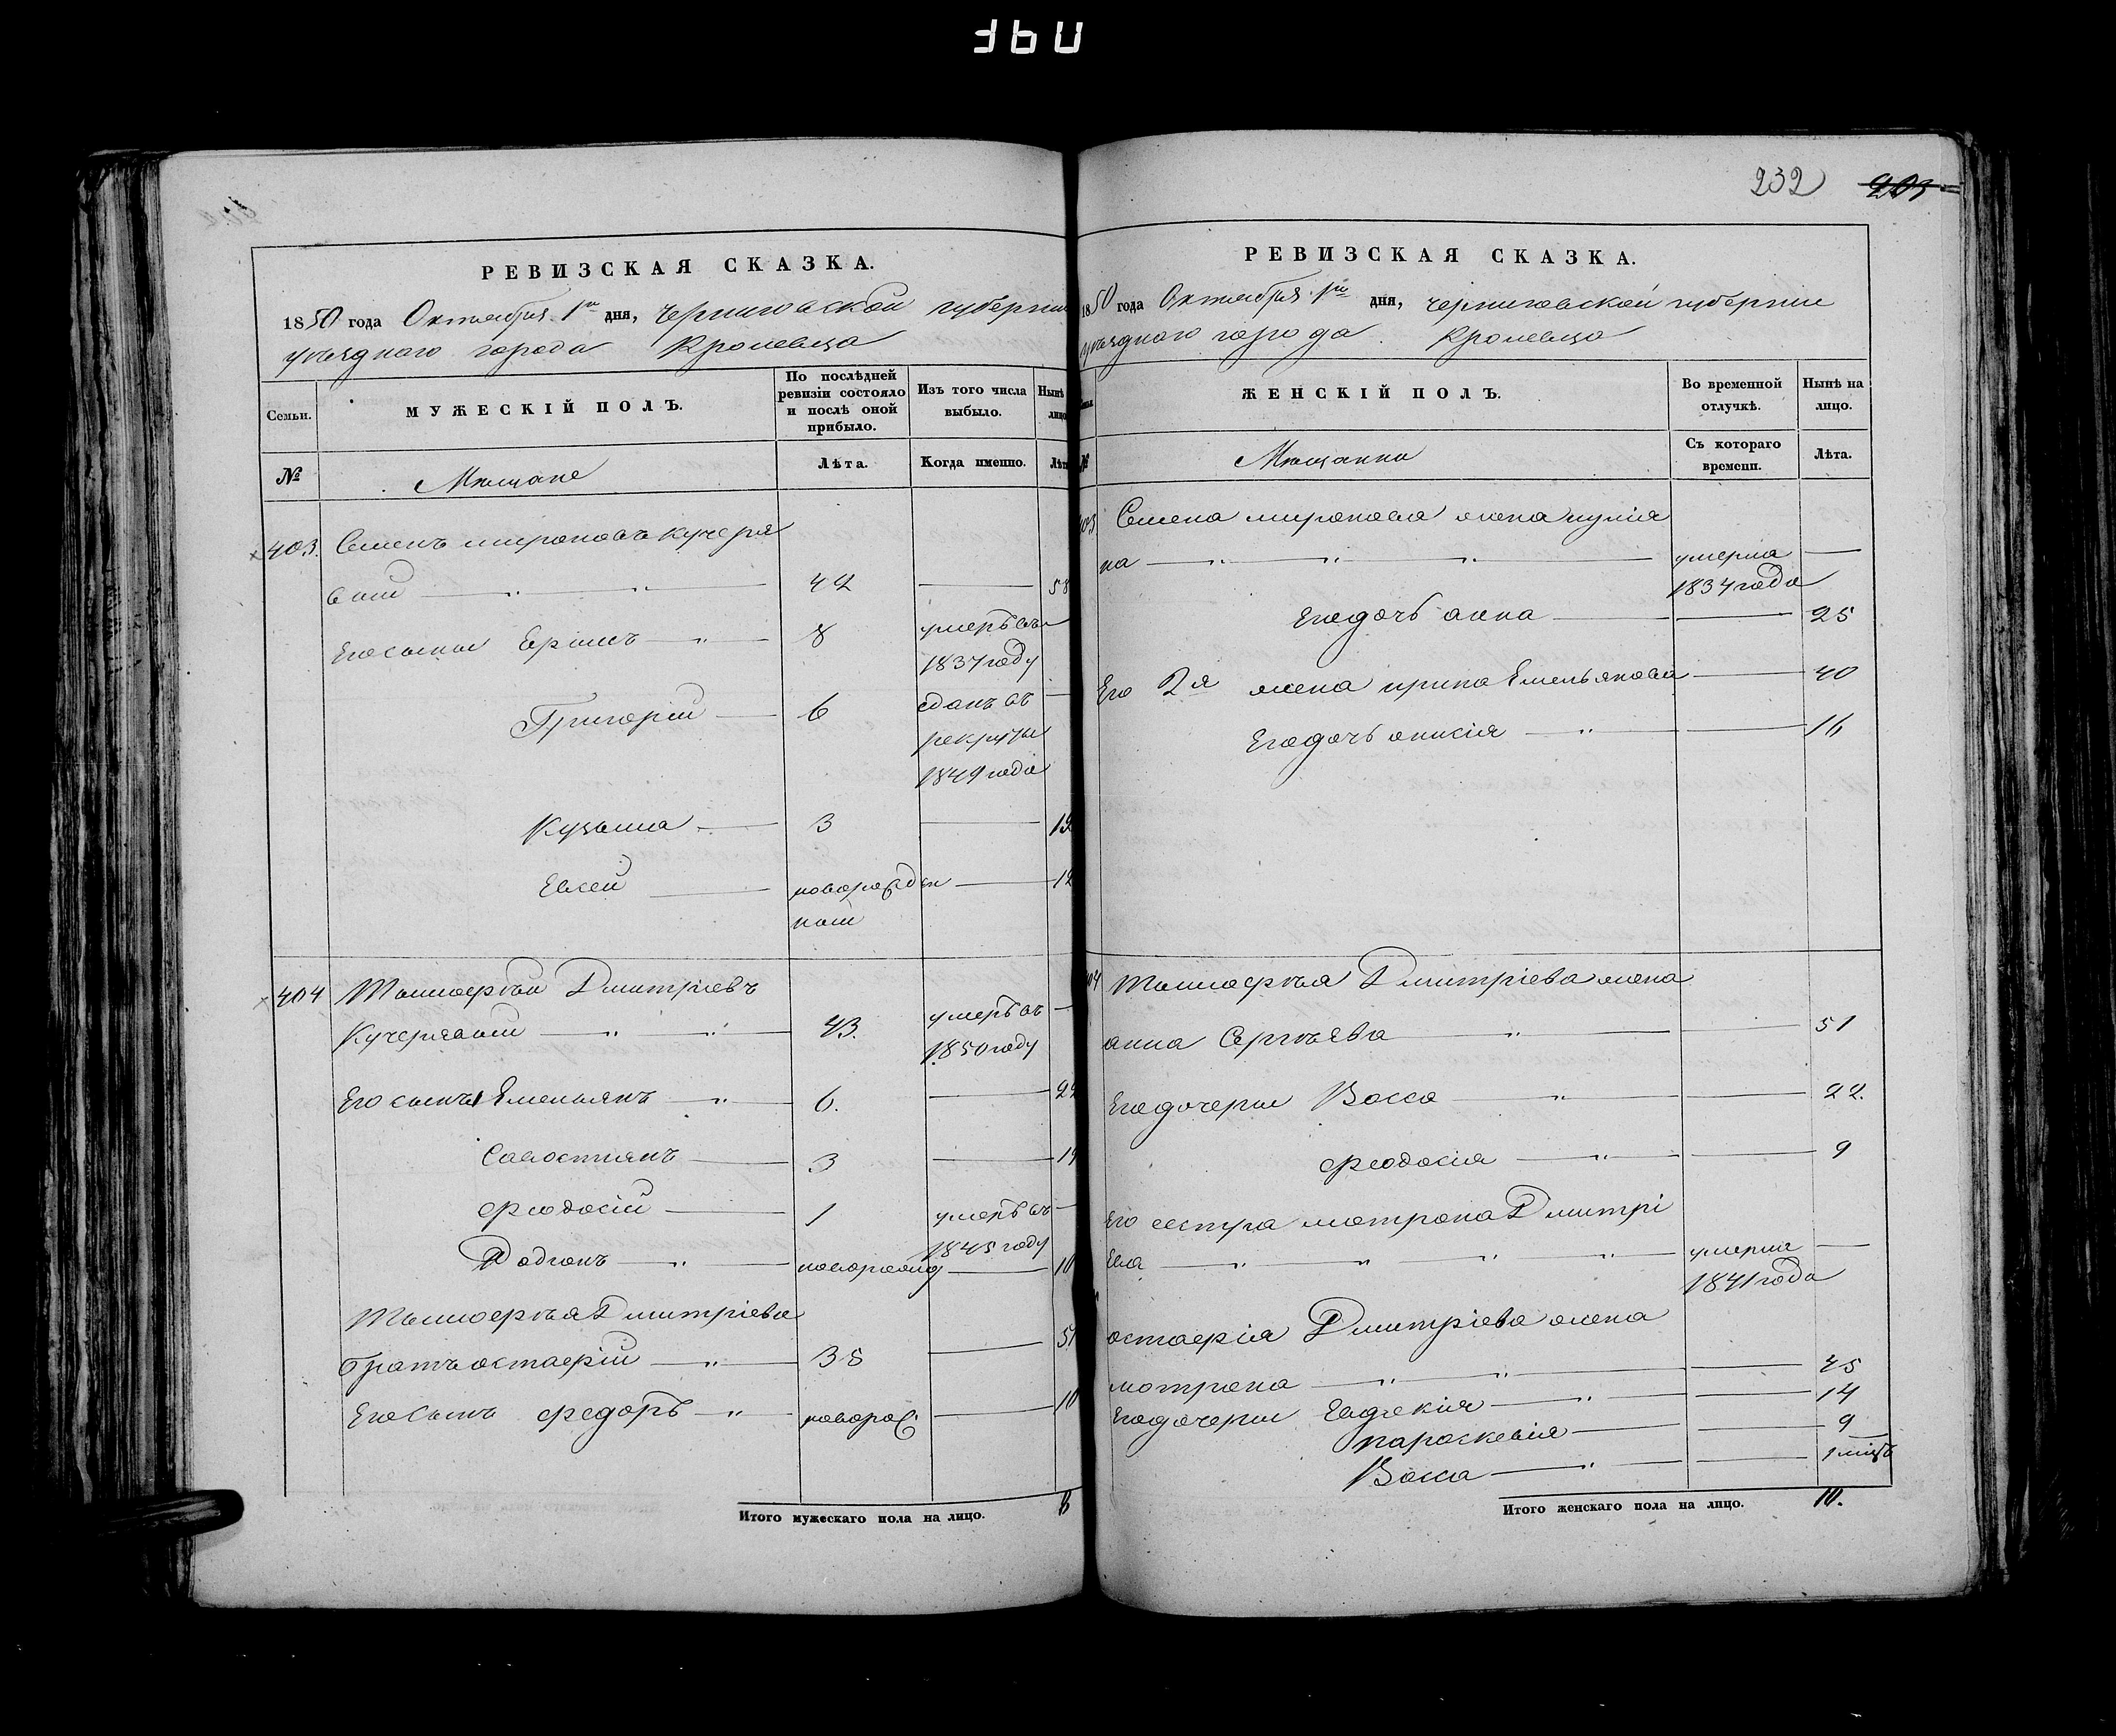 232 203
РЕВИЗСКАЯ СКАЗКА.
1850 года Октября 1го дня, Черниговской губернии
уѣзднаго города Кролевца
Семьи.
МУЖЕСКІЙ ПОЛЪ.
По послѣдней ревизіи состояло и послѣ оной прибыло.
Изъ того числа выбыло.
Нынѣ лицо
№
Мѣщане
Лѣта.
Когда именно.
Лѣт
403. Семенъ мироновъ кучеря
вый 42 58
Его сыны Ермилъ 8 умеръ въ
1837 году
Григорій 6 сданъ въ
рекруты
1849 года
Кузьма 3 19
Евсей новорожден 12
ный
404 Тимофѣй Дмитріевъ
Кучерявый 43. умеръ въ
1850 году
Его сыны Емельянъ 6. 22
Савостьянъ 3 19
феодосій 1 умеръ въ
1845 году
Родіонъ новорожд 10
Тимофѣя Дмитріева
братъ остафій 35 51
Его Сынъ федоръноворож 10
Итого мужескаго пола на лицо. 8
РЕВИЗСКАЯ СКАЗКА.
1850 года Октября 1го дня, черниговской губерніи
уѣзднаго города Кролевца
ЖЕНСКІЙ ПОЛЪ.
Во временной отлучкѣ.
Нынѣ на лицо.
№
Мѣщанки
Съ котораго времени.
Лѣта.
403 Семена миронова жена
на умерла
1834 года
Его дочь анна 25
Его 2я жена ирина Емельянова 40
Его дочь анисія 16
404 Тимофѣя Дмитріева жена
анна Сергѣева 51
Его дочери Васса 22.
феодосія 9
Его сестра мотрона Дмитрі
ева умерла
1841 года
остафія Дмитріева жена
мотрона 45
Его дочери Евдокія 14
параскевія 9
Васса 1 міц
Итого женскаго пола на лицо. 10.